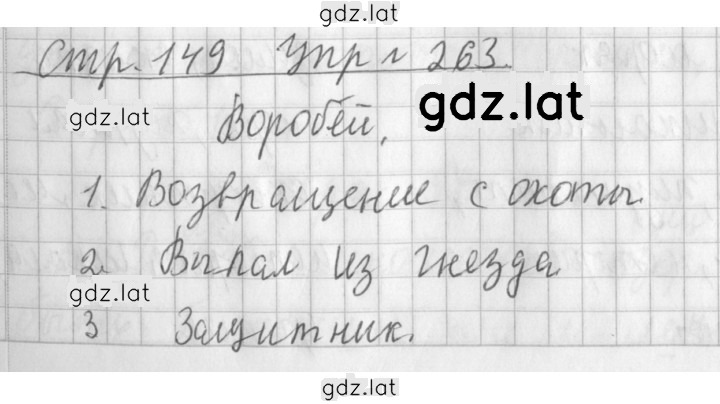 gdz.lat
Стр. 149 Упр № 263.
gdz.lat
gdz.lat
Воробей.
1. Возвращение с охоты.
2. Выпал из гнезда
gdz.lat
3 Защитник.
gdz.lat